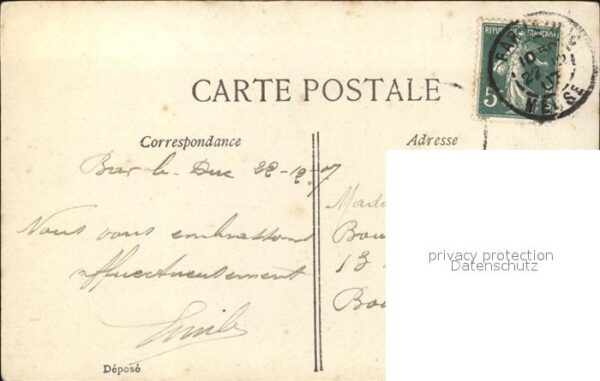 CARTE POSTALE
REPUBLIQUE FRANÇAISE
5
BAR-LE-DUC
MEUSE
Correspondance
Adresse
Bar le Duc 22-12-7
Nous vous embrassons
affectueusement
Emile
Déposé
Mada
Bou
13
Bou
privacy protection
Datenschutz